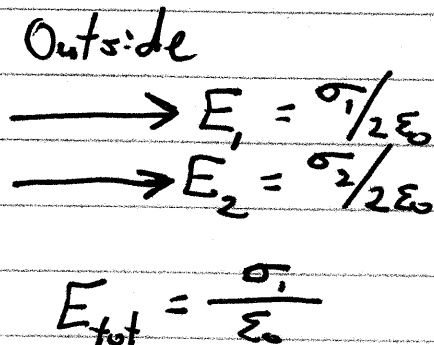 Outside
E₁ = σ₁/2ε₀
E₂ = σ₂/2ε₀
E_tot = σ₁/ε₀